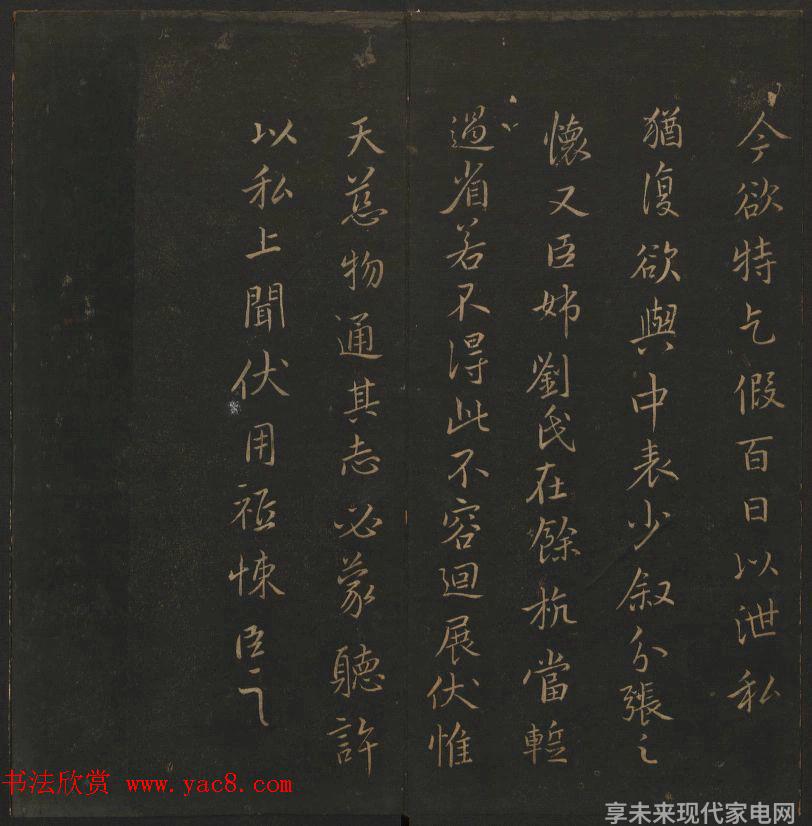 今欲特乞假百日以泄私
猶復欲與中表少叙分張之
懷又臣姊劉氏在餘杭當蹔
過省若不得此不容迴展伏惟
天慈物通其志必蒙聽許
以私上聞伏用祗悚臣
书法欣赏 www.yac8.com
享未来现代家电网